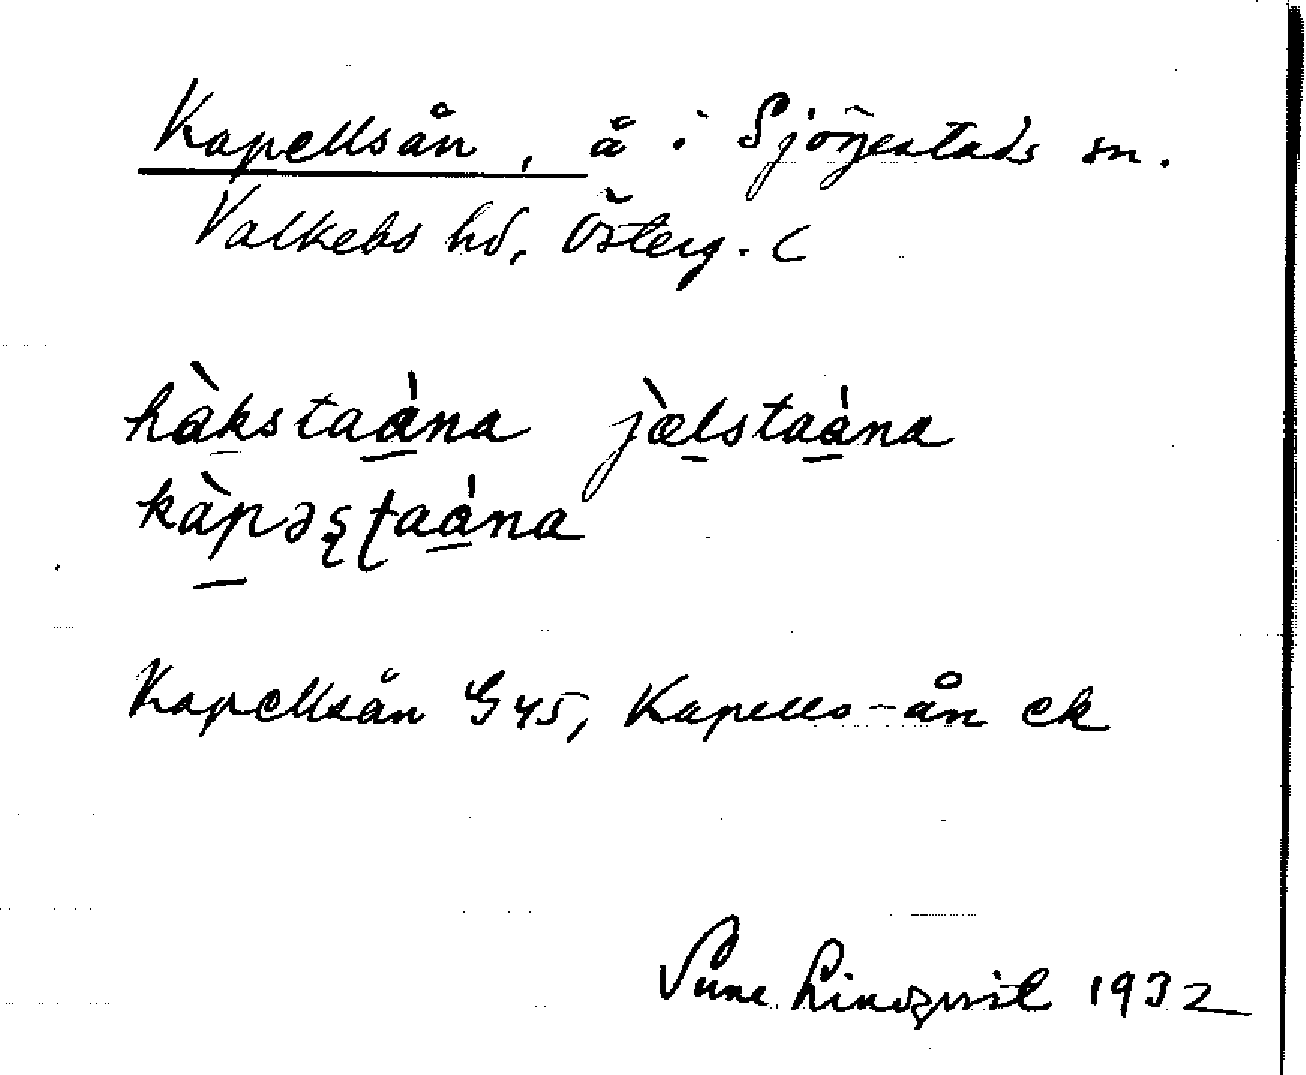 Kapellsån, å i Sjögestads sn.
Valkebo hd, Österg.
hàkstaána jælstaána
kàpəʂʈaána
Kapellsån G45, Kapells-ån ek
Sune Lindqvist 1932